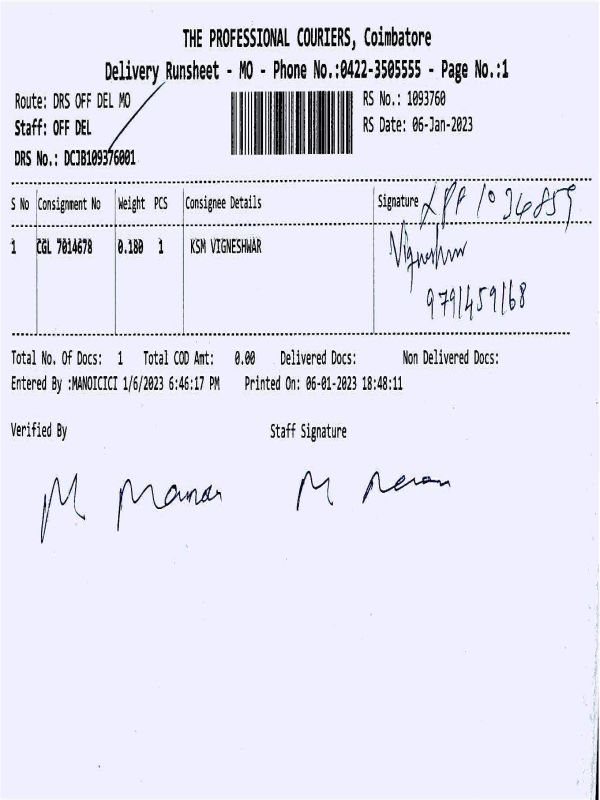 THE PROFESSIONAL COURIERS, Coimbatore
Delivery Runsheet - MO - Phone No.:0422-3505555 - Page No.:1
Route: DRS OFF DEL MO
RS No.: 1093760
Staff: OFF DEL
RS Date: 06-Jan-2023
DRS No.: DCJB109376001
S No Consignment No Weight PCS Consignee Details Signature
1 CGL 7014678 0.180 1 KSM VIGNESHWAR
9791459168
Total No. Of Docs: 1 Total COD Amt: 0.00 Delivered Docs: Non Delivered Docs:
Entered By :MANOICICI 1/6/2023 6:46:17 PM Printed On: 06-01-2023 18:48:11
Verified By Staff Signature